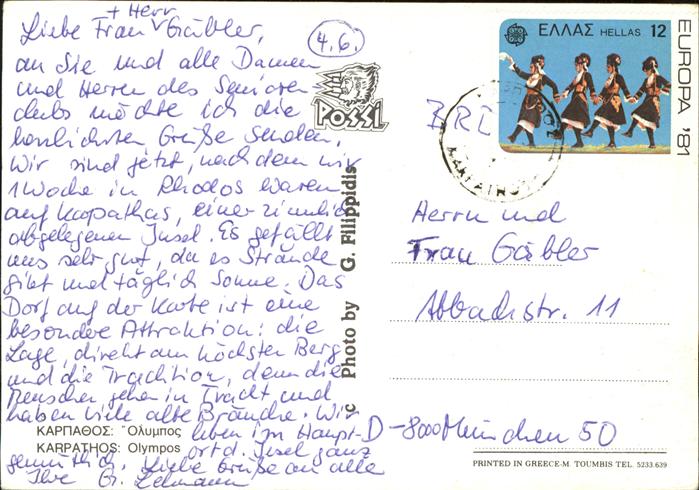 + Herr
Liebe Frau Gäbler,
an Sie und alle Damen
und Herren des Senioren
clubs möchte ich die
herzlichsten Grüße senden.
Wir sind jetzt, nach dem wir
1 Woche in Rhodos waren
auf Karpathos, einer ziemlich
abgelegenen Insel. Es gefällt
uns sehr gut, da es Strände
gibt und täglich Sonne. Das
Dorf auf der Karte ist eine
besondere Attraktion: die
Lage, direkt am höchsten Berg
und die Tradition, denn die
Menschen gehen in Tracht und
haben viele alte Bräuche. Wir
leben im Haupt-
ort d. Insel ganz
gemütlich. Liebe Grüße an alle
Ihre Gr. Lehmann
ΚΑΡΠΑΘΟΣ: Ὄλυμπος
KARPATHOS: Olympos
4.6.
POSSI
Photo by G. Filippidis
ΕΛΛΑΣ HELLAS 12
EUROPA '81
BRD
Herrn und
Frau Gäbler
Abbachstr. 11
D-8000 München 50
PRINTED IN GREECE-M. TOUMBIS TEL. 5233.639